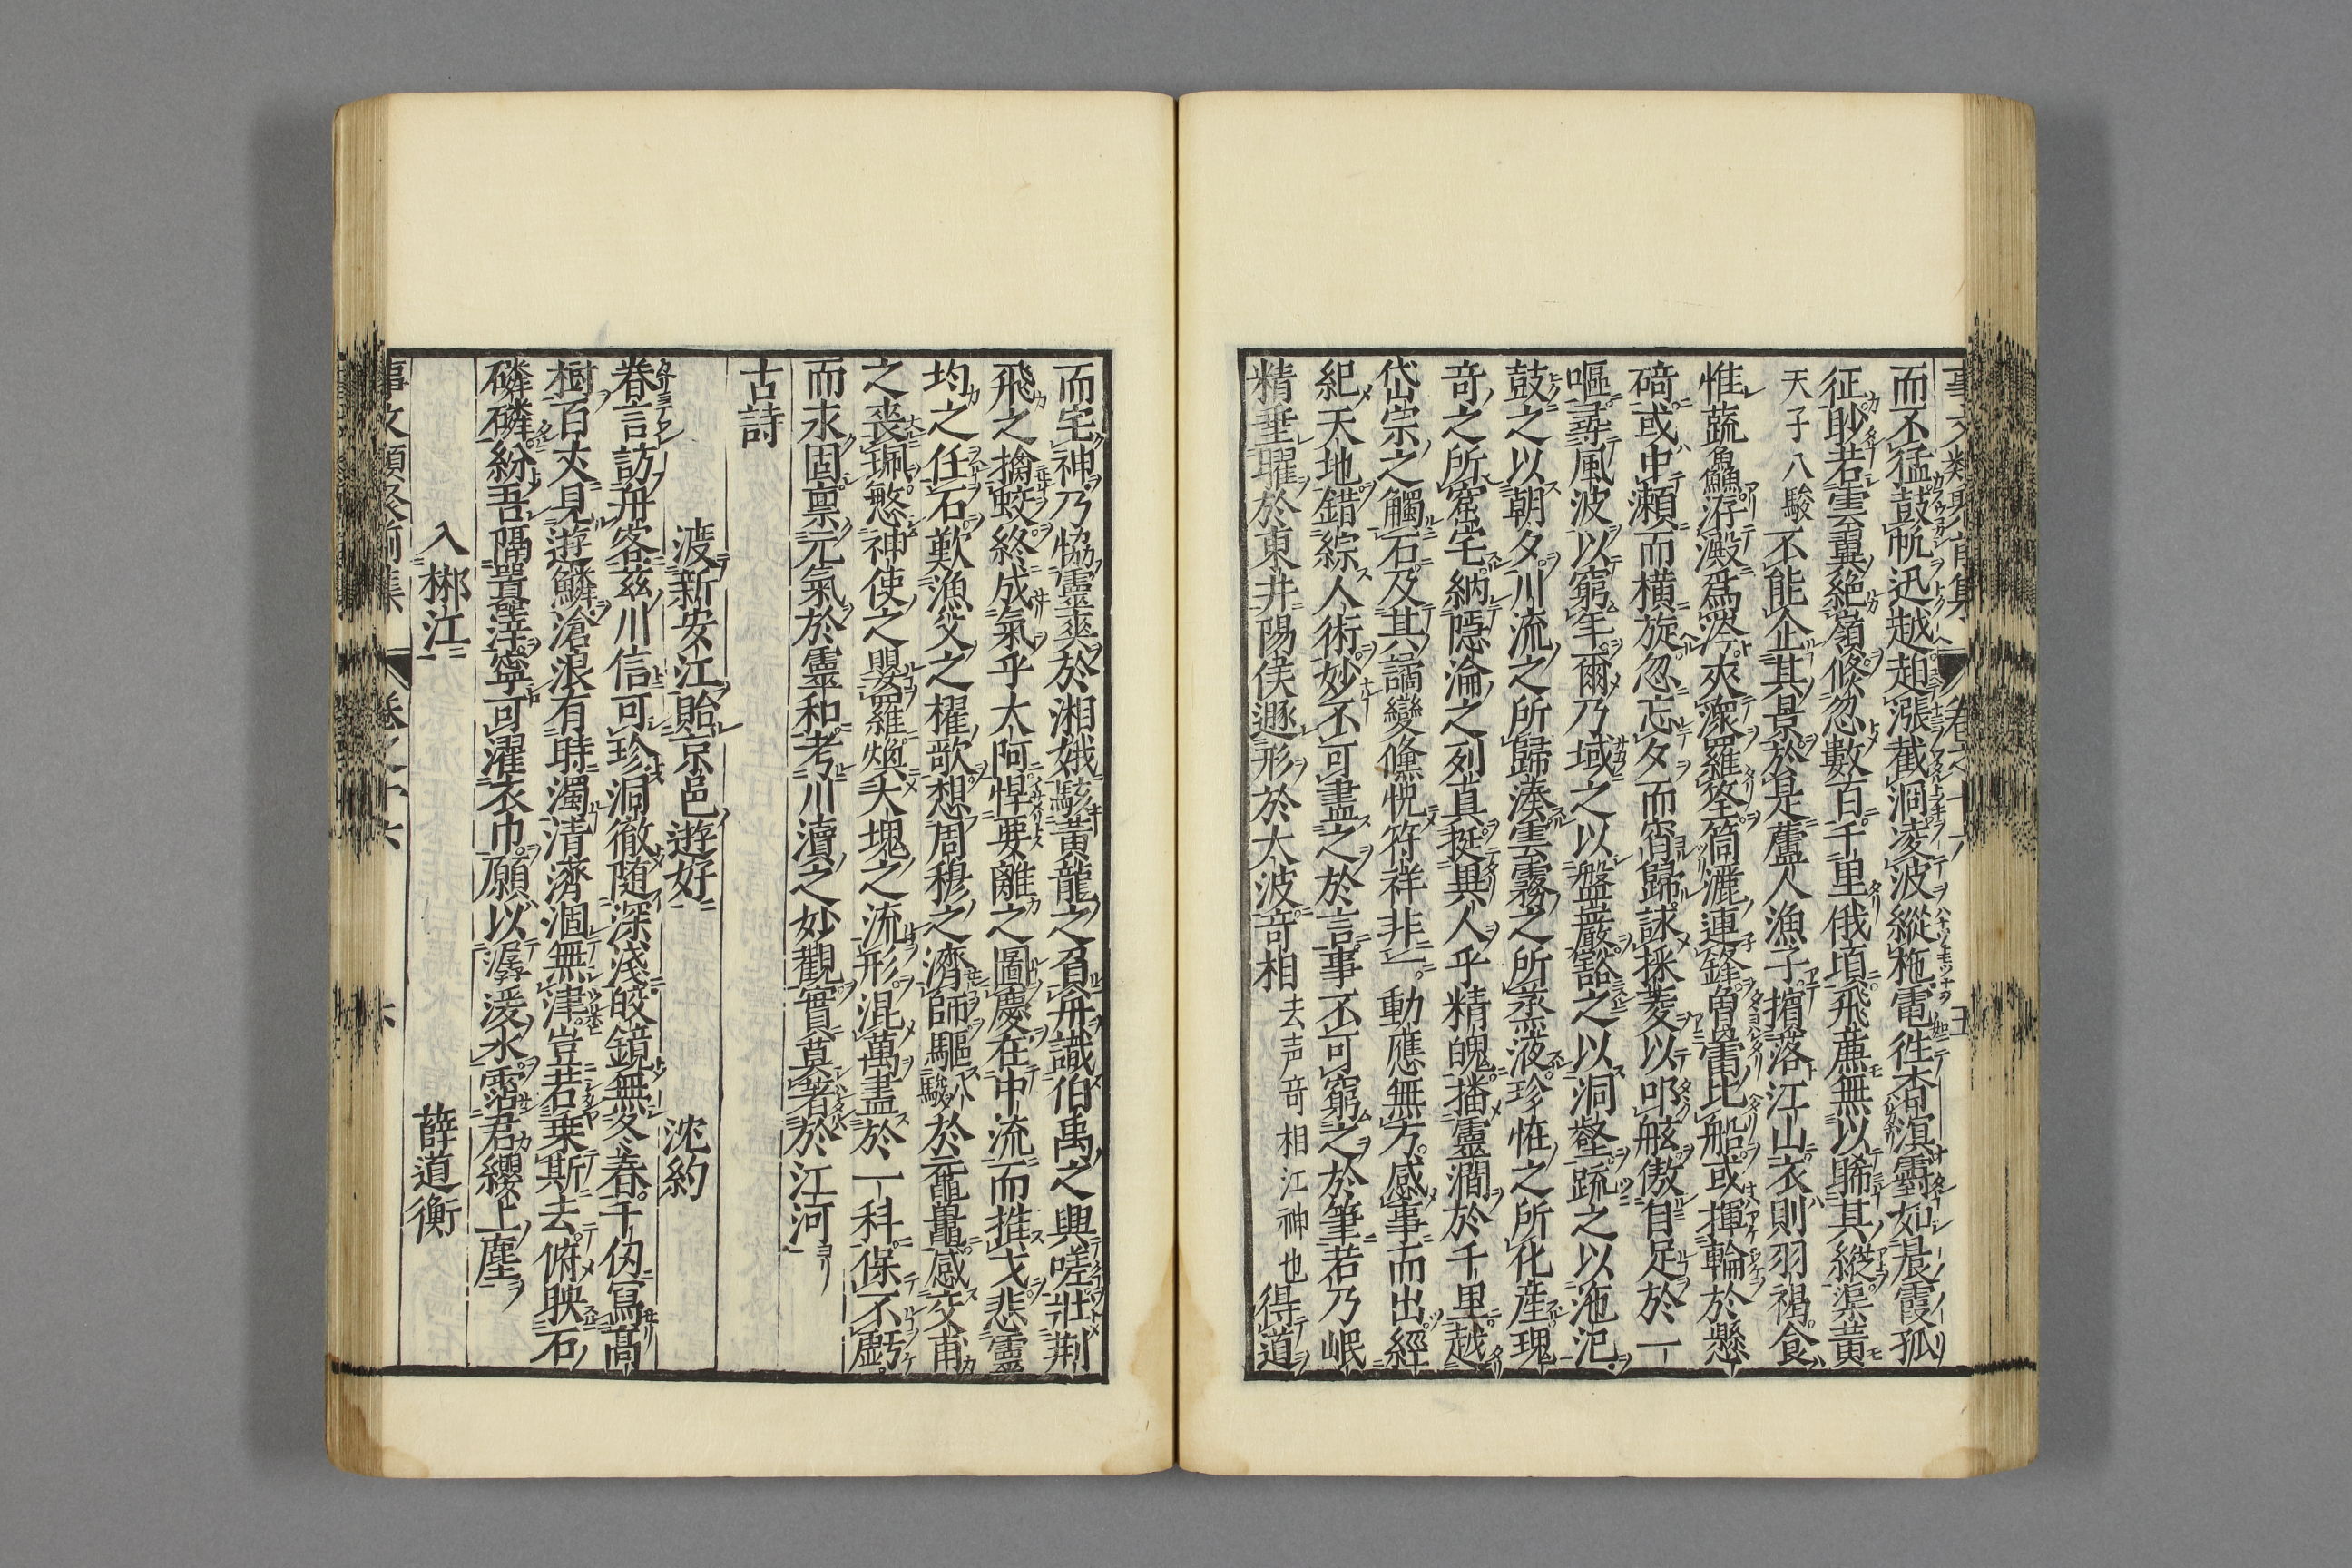 事文類聚前集 卷之十六 五
而不猛鼓帆迅越趠漲截洞凌波縱柂電往杳溟霩如晨霞孤
征眇若雲翼絶嶺倐忽數百千里俄頃飛廉無以睎其縱渠黃
天子八駿不能企其景於是蘆人漁子擯落江山衣則羽褐食
惟蔬鱻洊澱爲涔夾潨羅筌筒灑連鋒罾䍡比船或揮輪於懸
碕或中瀬而橫旋忽忘夕而宵歸詠採菱以叩舷傲自足於一
嘔尋風波以窮年爾乃域之以盤巖豁之以洞壑疏之以沲汜
鼓之以朝夕川流之所歸湊雲霧之所蒸液珍恠之所化産瑰
竒之所窟宅納隱淪之列眞挺異人乎精魄播靈潤於千里越
岱宗之觸石及其譎變儵怳符祥非一動應無方感事而出經
紀天地錯綜人術妙不可盡之於言事不可窮之於筆若乃岷
精垂曜於東井陽侯遯形於大波竒相去声竒相江神也得道
而宅神乃恊靈爽於湘娥駭黃龍之負舟識伯禹之興嗟壯荆
飛之擒蛟終成氣乎太阿悍要離之圖慶在中流而推戈悲靈
均之任石歎漁父之櫂歌想周穆之濟師驅八駿於黿鼉感交甫
之喪珮愍神使之嬰羅煥大塊之流形混萬盡於一科保不虧
而求固禀元氣於靈和考川瀆之妙觀實莫著於江河
古詩
渡新安江貽京邑遊好 沈約
眷言訪舟客茲川信可珍洞徹随深淺皎鏡無冬春千仭冩髙
樹百丈見遊鱗滄浪有時濁清濟涸無津豈若乗斯去俯映石
磷磷紛吾隔囂滓寧可濯衣巾願以潺湲水霑君纓上塵
入郴江 薛道衡
事文類聚前集 卷之十六 六